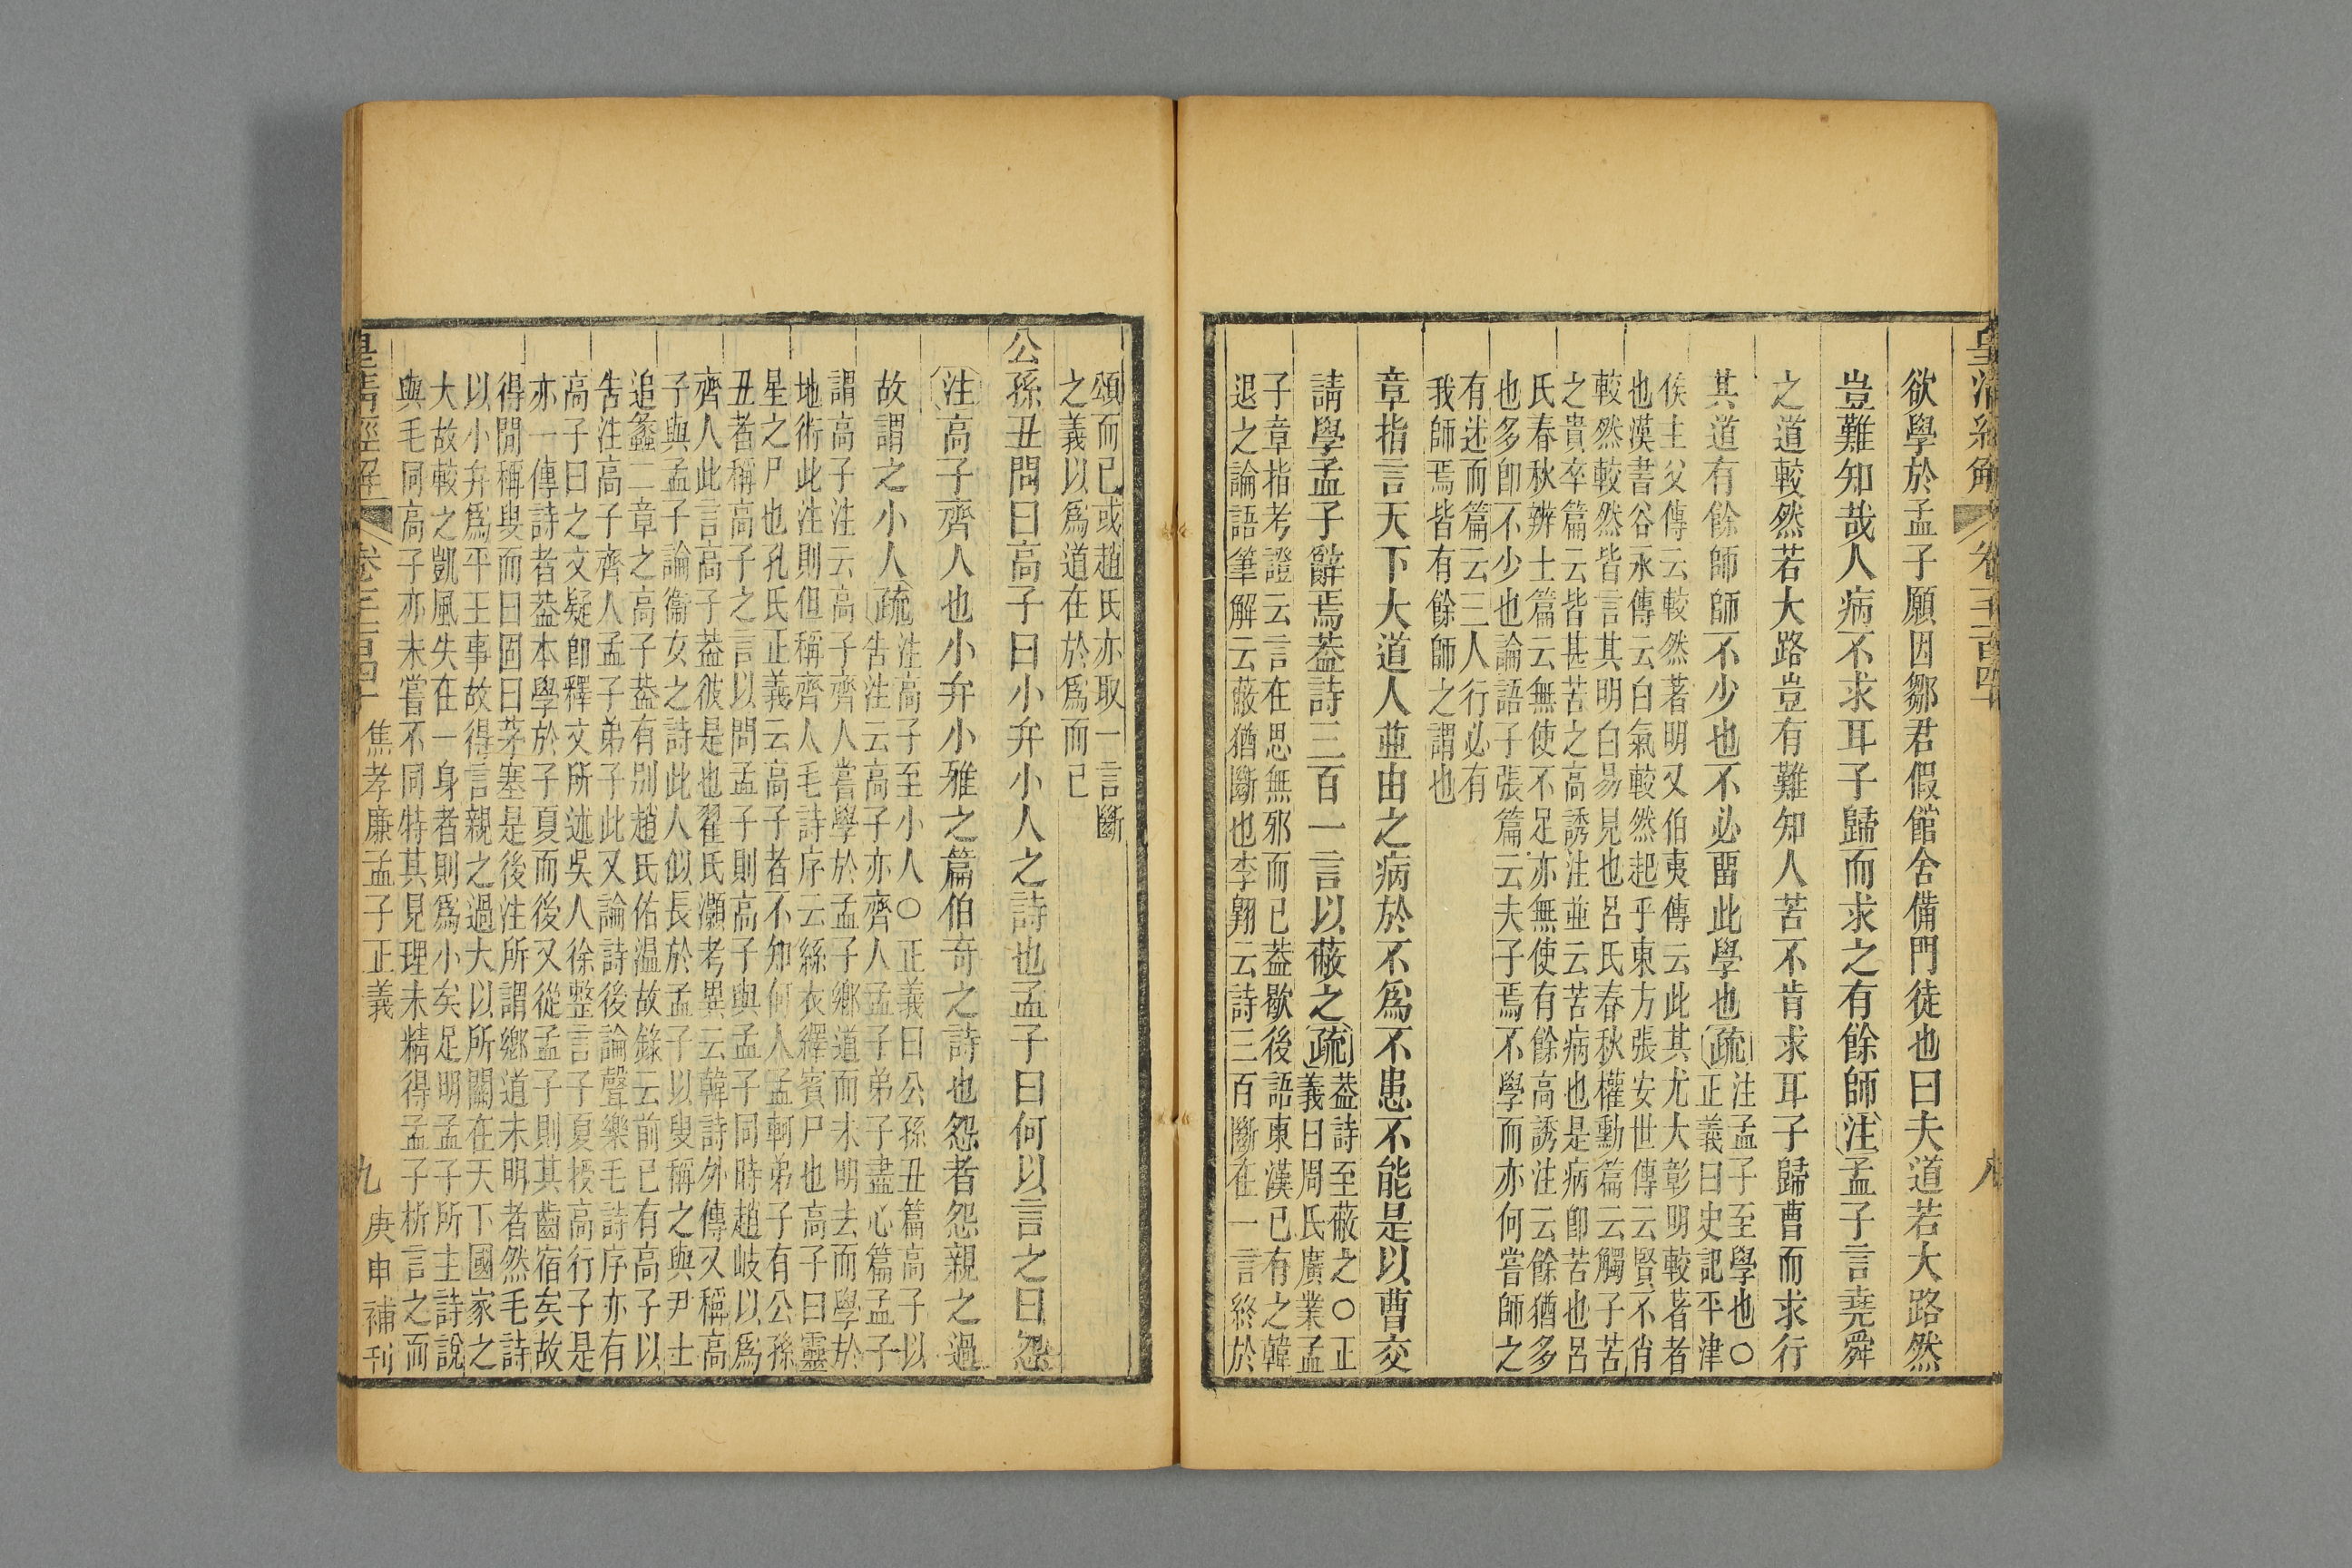 皇清經解 卷一千一百四十 八
欲學於孟子願因鄒君假館舍備門徒也曰夫道若大路然
豈難知哉人病不求耳子歸而求之有餘師注孟子言堯舜
之道較然若大路豈有難知人苦不肯求耳子歸曹而求行
其道有餘師師不少也不必畱此學也疏
注孟子至學也○
正義曰史記平津
侯主父傳云較然著明又伯夷傳云此其尤大彰明較著者
也漢書谷永傳云白氣較然起乎東方張安世傳云賢不肖
較然較然皆言其明白易見也呂氏春秋權勳篇云觸子苦
之貴卒篇云皆甚苦之高誘注並云苦病也是病卽苦也呂
氏春秋辨士篇云無使不足亦無使有餘高誘注云餘猶多
也多卽不少也論語子張篇云夫子焉不學而亦何嘗師之
有述而篇云三人行必有
我師焉皆有餘師之謂也
章指言天下大道人並由之病於不爲不患不能是以曹交
請學孟子辭焉蓋詩三百一言以蔽之疏
蓋詩至蔽之○正
義曰周氏廣業孟
子章指考證云言在思無邪而已蓋歇後語東漢已有之韓
退之論語筆解云蔽猶斷也李翺云詩三百斷在一言終於
頌而已或趙氏亦取一言斷
之義以爲道在於爲而已
公孫丑問曰高子曰小弁小人之詩也孟子曰何以言之曰怨
注高子齊人也小弁小雅之篇伯奇之詩也怨者怨親之過
故謂之小人疏
注高子至小人○正義曰公孫丑篇高子以
告注云高子亦齊人孟子弟子盡心篇孟子
謂高子注云高子齊人嘗學於孟子鄉道而未明去而學於
地術此注則但稱齊人毛詩序云絲衣繹賓尸也高子曰靈
星之尸也孔氏正義云高子者不知何人孟軻弟子有公孫
丑者稱高子之言以問孟子則高子與孟子同時趙岐以爲
齊人此言高子蓋彼是也翟氏灝考異云韓詩外傳又稱高
子與孟子論衞女之詩此人似長於孟子以叟稱之與尹士
追蠡二章之高子蓋有別趙氏佑温故錄云前已有高子以
告注高子齊人孟子弟子此又論詩後論聲樂毛詩序亦有
高子曰之文疑卽釋文所述吳人徐整言子夏授高行子是
亦一傳詩者蓋本學於子夏而後又從孟子則其齒宿矣故
得閒稱叟而曰固曰茅塞是後注所謂鄉道未明者然毛詩
以小弁爲平王事故得言親之過大以所關在天下國家之
大故較之凱風失在一身者則爲小矣足明孟子所主詩說
與毛同高子亦未嘗不同特其見理未精得孟子析言之而
皇清經解 卷一千一百四十 焦孝廉孟子正義 九 庚申補刊